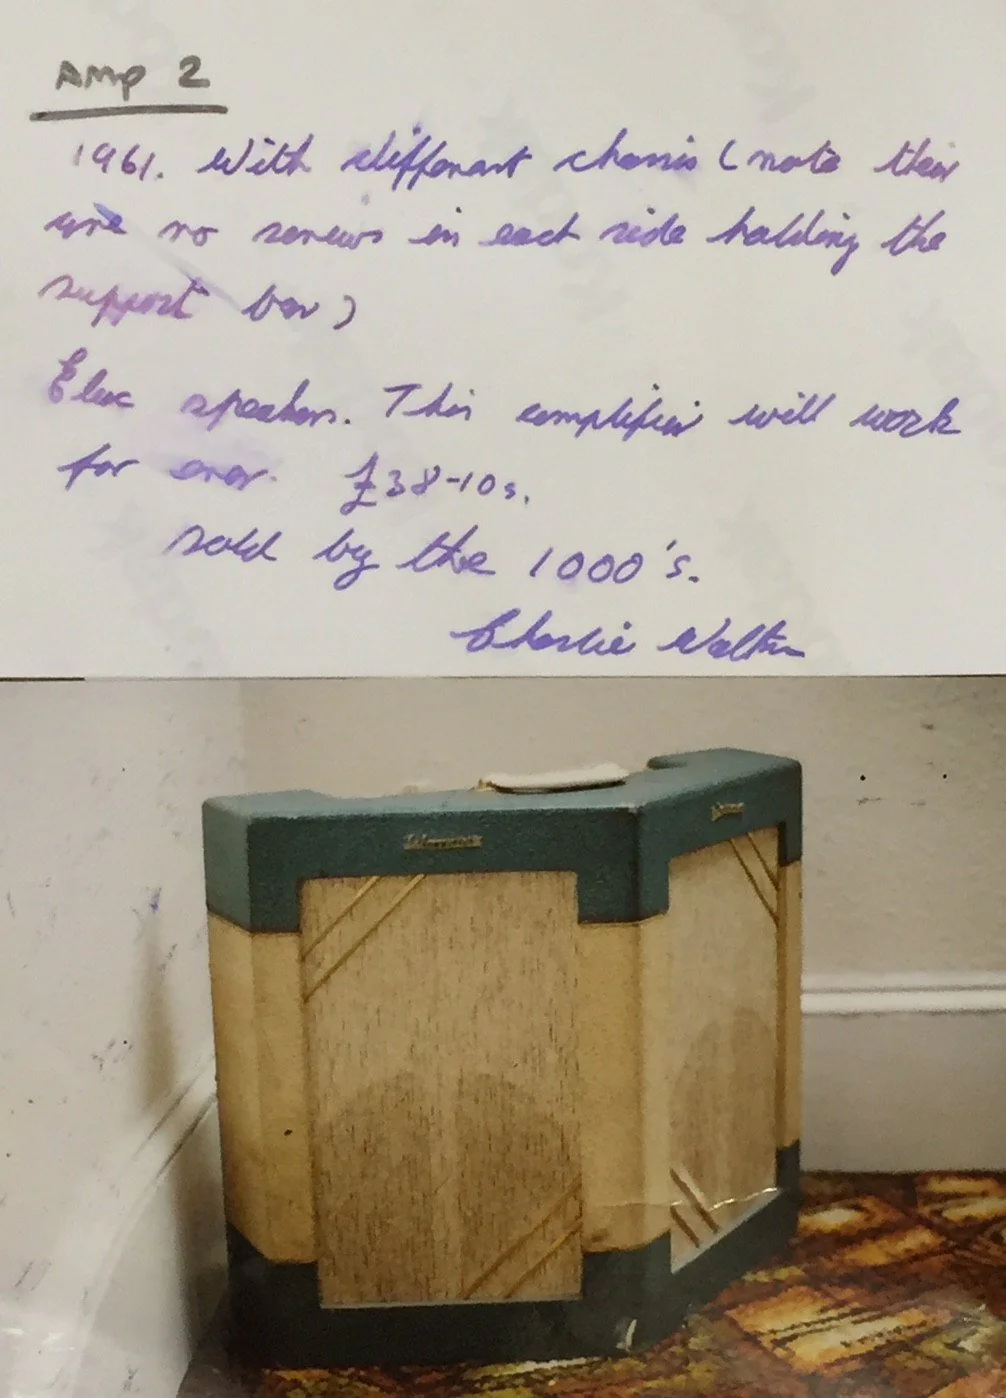 Amp 2
1961. With different chassis (note their
are no screws in each side holding the
support bar)
Elac speakers. This amplifier will work
for ever. £38-10s.
sold by the 1000's.
Charlie Watkins